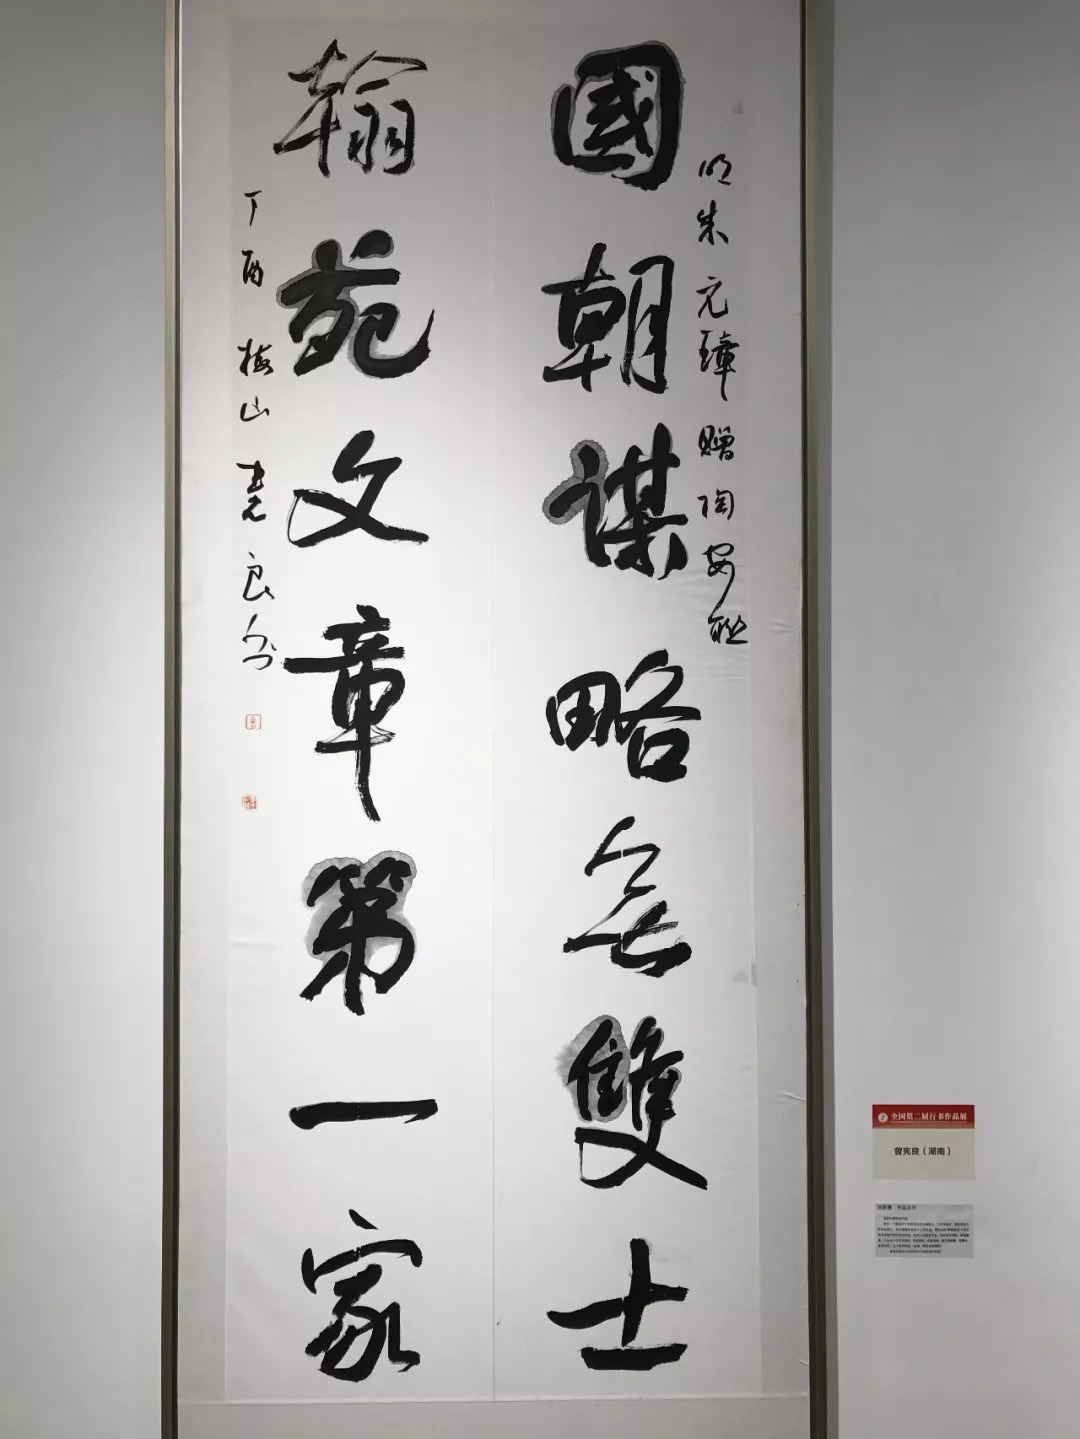 明朱元璋赠陶安联
國朝謀略無雙士
翰苑文章第一家
丁酉 梅山 憲良书
全国第二届行书作品展
曾宪良（湖南）